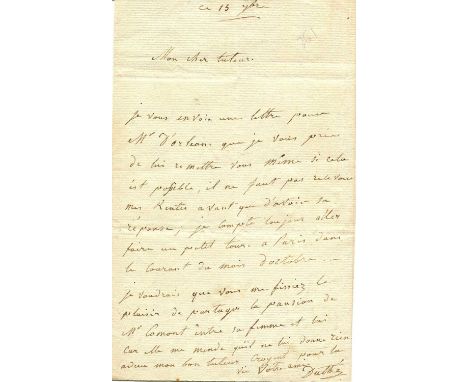 ce 15 7bre
Mon cher tuteur
je vous envoie une lettre pour
Mr D'orleans que je vous prie
de lui remettre vous même si cela
est possible, il ne faut pas recevoir
mes Rentes avant que d'avoir sa
réponse, je compte toujour aller
faire un petit tour a Paris dans
le courant du mois d'octobre
je voudrais que vous me fissiez le
plaisir de partager la pansion de
Mr Comont entre sa femme et lui
car Me me mande qu'il ne lui donne rien
adieu mon bon tuteur croyez pour la
vie Votre amie Duthé